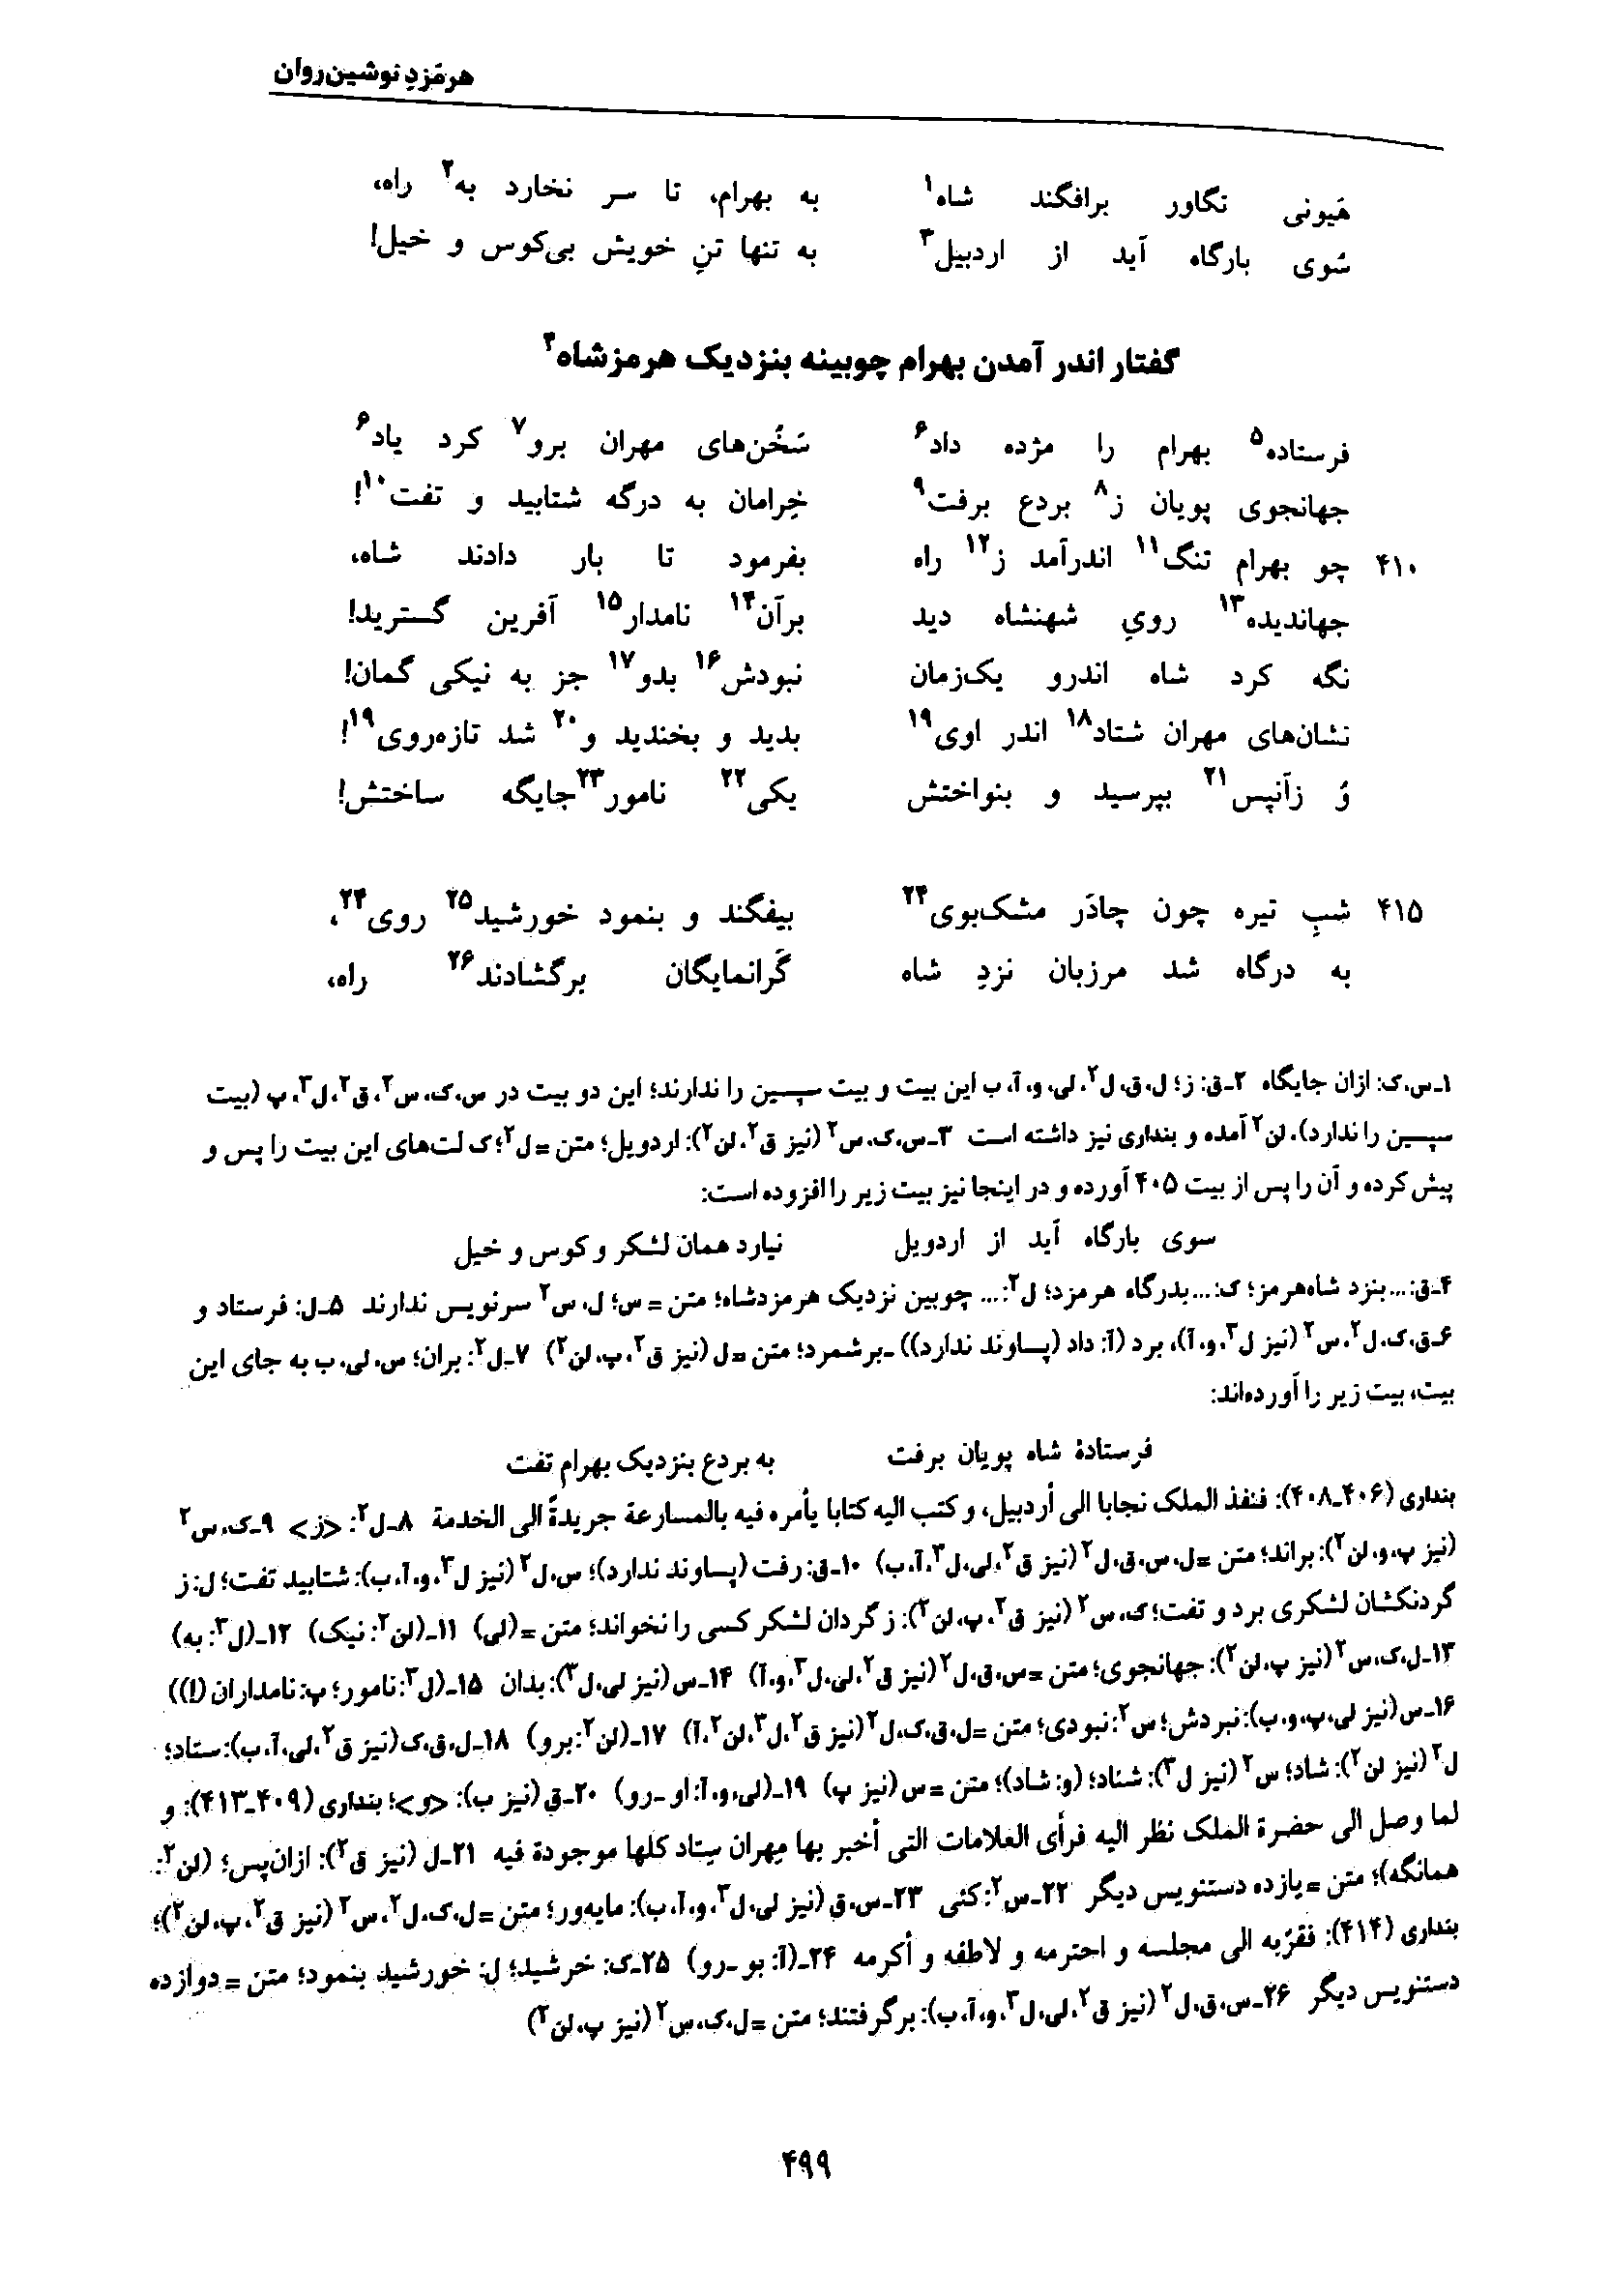 هرمَزدِ نوشین‌روان
هَیونی تگاور برافگند شاه۱ به بهرام، تا سر نخارد به۲ راه،
سُوی بارگاه آید از اردبیل۳ به تنها تنِ خویش بی‌کوس و خیل!
گفتار اندر آمدن بهرام چوبینه بنزدیک هرمزشاه۴
فرستاده۵ بهرام را مژده داد۶ سَخُن‌های مهران برو۷ کرد یاد۶
جهانجوی پویان ز۸ بردع برفت۹ خِرامان به درگه شتابید و تفت۱۰!
۴۱۰ چو بهرام تنگ۱۱ اندرآمد ز۱۲ راه بفرمود تا بار دادند شاه،
جهاندیده۱۳ رویِ شهنشاه دید برآن۱۴ نامدار۱۵ آفرین گسترید!
نگه کرد شاه اندرو یک‌زمان نبودش۱۶ بدو۱۷ جز به نیکی گمان!
نشان‌های مهران شتاد۱۸ اندر اوی۱۹ بدید و بخندید و۲۰ شد تازه‌روی۱۹!
وُ زآنپس۲۱ بپرسید و بنواختش یکی۲۲ نامور۲۳ جایگه ساختش!
۴۱۵ شبِ تیره چون چادَر مشک‌بوی۲۴ بیفگند و بنمود خورشید۲۵ روی۲۴،
به درگاه شد مرزبان نزدِ شاه گَرانمایگان برگشادند۲۶ راه،
۱ـ س، ک: ازان جایگاه ۲ـ ق: ز؛ ل، ق، ل۲، لی، و، آ، ب این بیت و بیت سپسین را ندارند؛ این دو بیت در س، ک، س۲، ق۲، ل۳، پ (بیت
سپسین را ندارد)، لن۲ آمده و بنداری نیز داشته است ۳ـ س، ک، س۲ (نیز ق۲، لن۲): اردویل؛ متن = ل۲؛ ک لت‌های این بیت را پس و
پیش کرده و آن را پس از بیت ۴۰۵ آورده و در اینجا نیز بیت زیر را افزوده است:
سوی بارگاه آید از اردویل نیارد همان لشکر و کوس و خیل
۴ـ ق: ... بنزد شاه‌هرمز؛ ک: ... بدرگاه هرمزد؛ ل۲: ... چوبین نزدیک هرمزدشاه؛ متن = س؛ ل، س۲ سرنویس ندارند ۵ـ ل: فرستاد و
۶ـ ق، ک، ل۲، س۲ (نیز ل۳، و، آ)، برد (آ: داد (پساوند ندارد)) ـ برشمرد؛ متن = ل (نیز ق۲، پ، لن۲) ۷ـ ل۲: بران؛ س، لی، ب به جای این
بیت، بیت زیر را آورده‌اند:
فرستادهٔ شاه پویان برفت به بردع بنزدیک بهرام تفت
بنداری (۴۰۶ـ۴۰۸): فنفذ الملک نجابا الی أردبیل، و کتب الیه کتابا یأمره فیه بالمسارعة جریدةً الی الخدمة ۸ـ ل۲: <ز> ۹ـ ک، س۲
(نیز پ، و، لن۲): براند؛ متن = ل، س، ق، ل۲ (نیز ق۲، لی، ل۳، آ، ب) ۱۰ـ ق: رفت (پساوند ندارد)؛ س، ل۲ (نیز ل۳، و، آ، ب): شتابید تفت؛ ل: ز
گردنکشان لشکری برد و تفت؛ ک، س۲ (نیز ق۲، پ، لن۲): ز گردان لشکر کسی را نخواند؛ متن = (لی) ۱۱ـ (لن۲: نیک) ۱۲ـ (ل۳: به)
۱۳ـ ل، ک، س۲ (نیز پ، لن۲): جهانجوی؛ متن = س، ق، ل۲ (نیز ق۲، لی، ل۳، و، آ) ۱۴ـ س (نیز لی، ل۳): بدان ۱۵ـ (ل۳: نامور؛ پ: نامداران (!))
۱۶ـ س (نیز لی، پ، و، ب): نبردش؛ س۲: نبودی؛ متن = ل، ق، ک، ل۲ (نیز ق۲، ل۳، لن۲، آ) ۱۷ـ (لن۲: برو) ۱۸ـ ل، ق، ک (نیز ق۲، لی، آ، ب): ستاد؛
ل۲ (نیز لن۲): شاد؛ س۲ (نیز ل۳): شناد؛ (و: شاد)؛ متن = س (نیز پ) ۱۹ـ (لی، و، آ: او ـ رو) ۲۰ـ ق (نیز ب): <و>؛ بنداری (۴۰۹ـ۴۱۳): و
لما وصل الی حضرة الملک نظر الیه فرأی العلامات التی أخبر بها مِهران سِتاد کلها موجودة فیه ۲۱ـ ل (نیز ق۲): ازان‌پس؛ (لن۲:
همانگه)؛ متن = یازده دستنویس دیگر ۲۲ـ س۲: کئی ۲۳ـ س، ق (نیز لی، ل۳، و، آ، ب): مایه‌ور؛ متن = ل، ک، ل۲، س۲ (نیز ق۲، پ، لن۲)؛
بنداری (۴۱۴): فقرّبه الی مجلسه و احترمه و لاطفه و أکرمه ۲۴ـ (آ: بو ـ رو) ۲۵ـ ک: خرشید؛ ل: خورشید بنمود؛ متن = دوازده
دستنویس دیگر ۲۶ـ س، ق، ل۲ (نیز ق۲، لی، ل۳، و، آ، ب): برگرفتند؛ متن = ل، ک، س۲ (نیز پ، لن۲)
۴۹۹